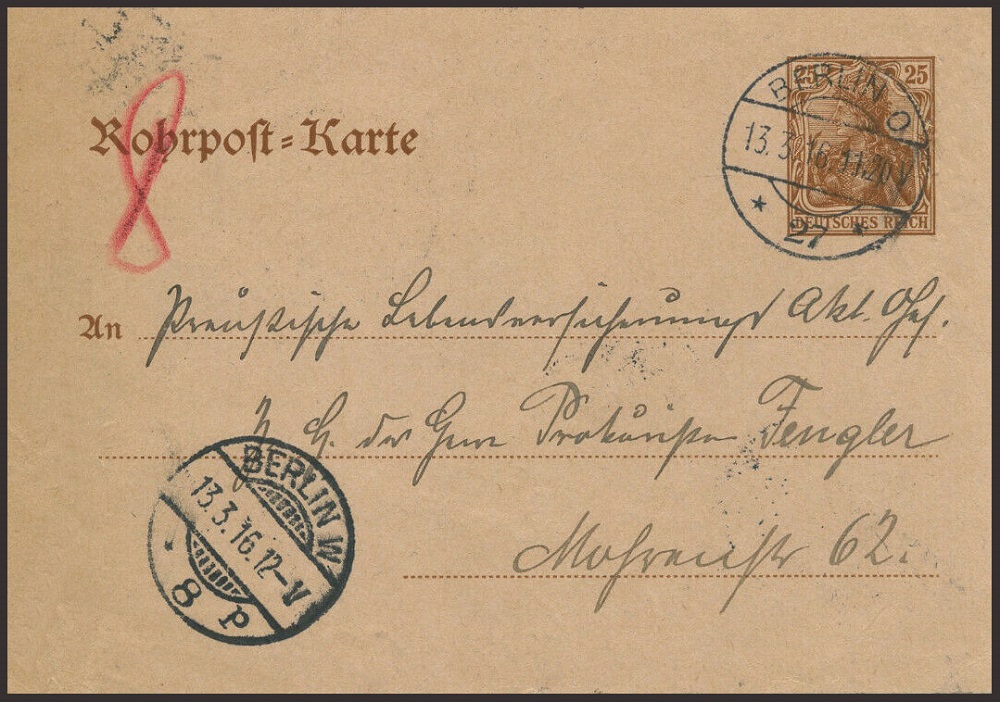 25 25
BERLIN O
13.3.16.11.20 V
* 27 *
DEUTSCHES REICH
Rohrpoſt=Karte
8
An Preußische Lebensversicherungs Akt. Ges.
z. H. des Herrn Prokuristen Fengler
Mohrenstr 62.
BERLIN W
13.3.16.12-V
* 8 P